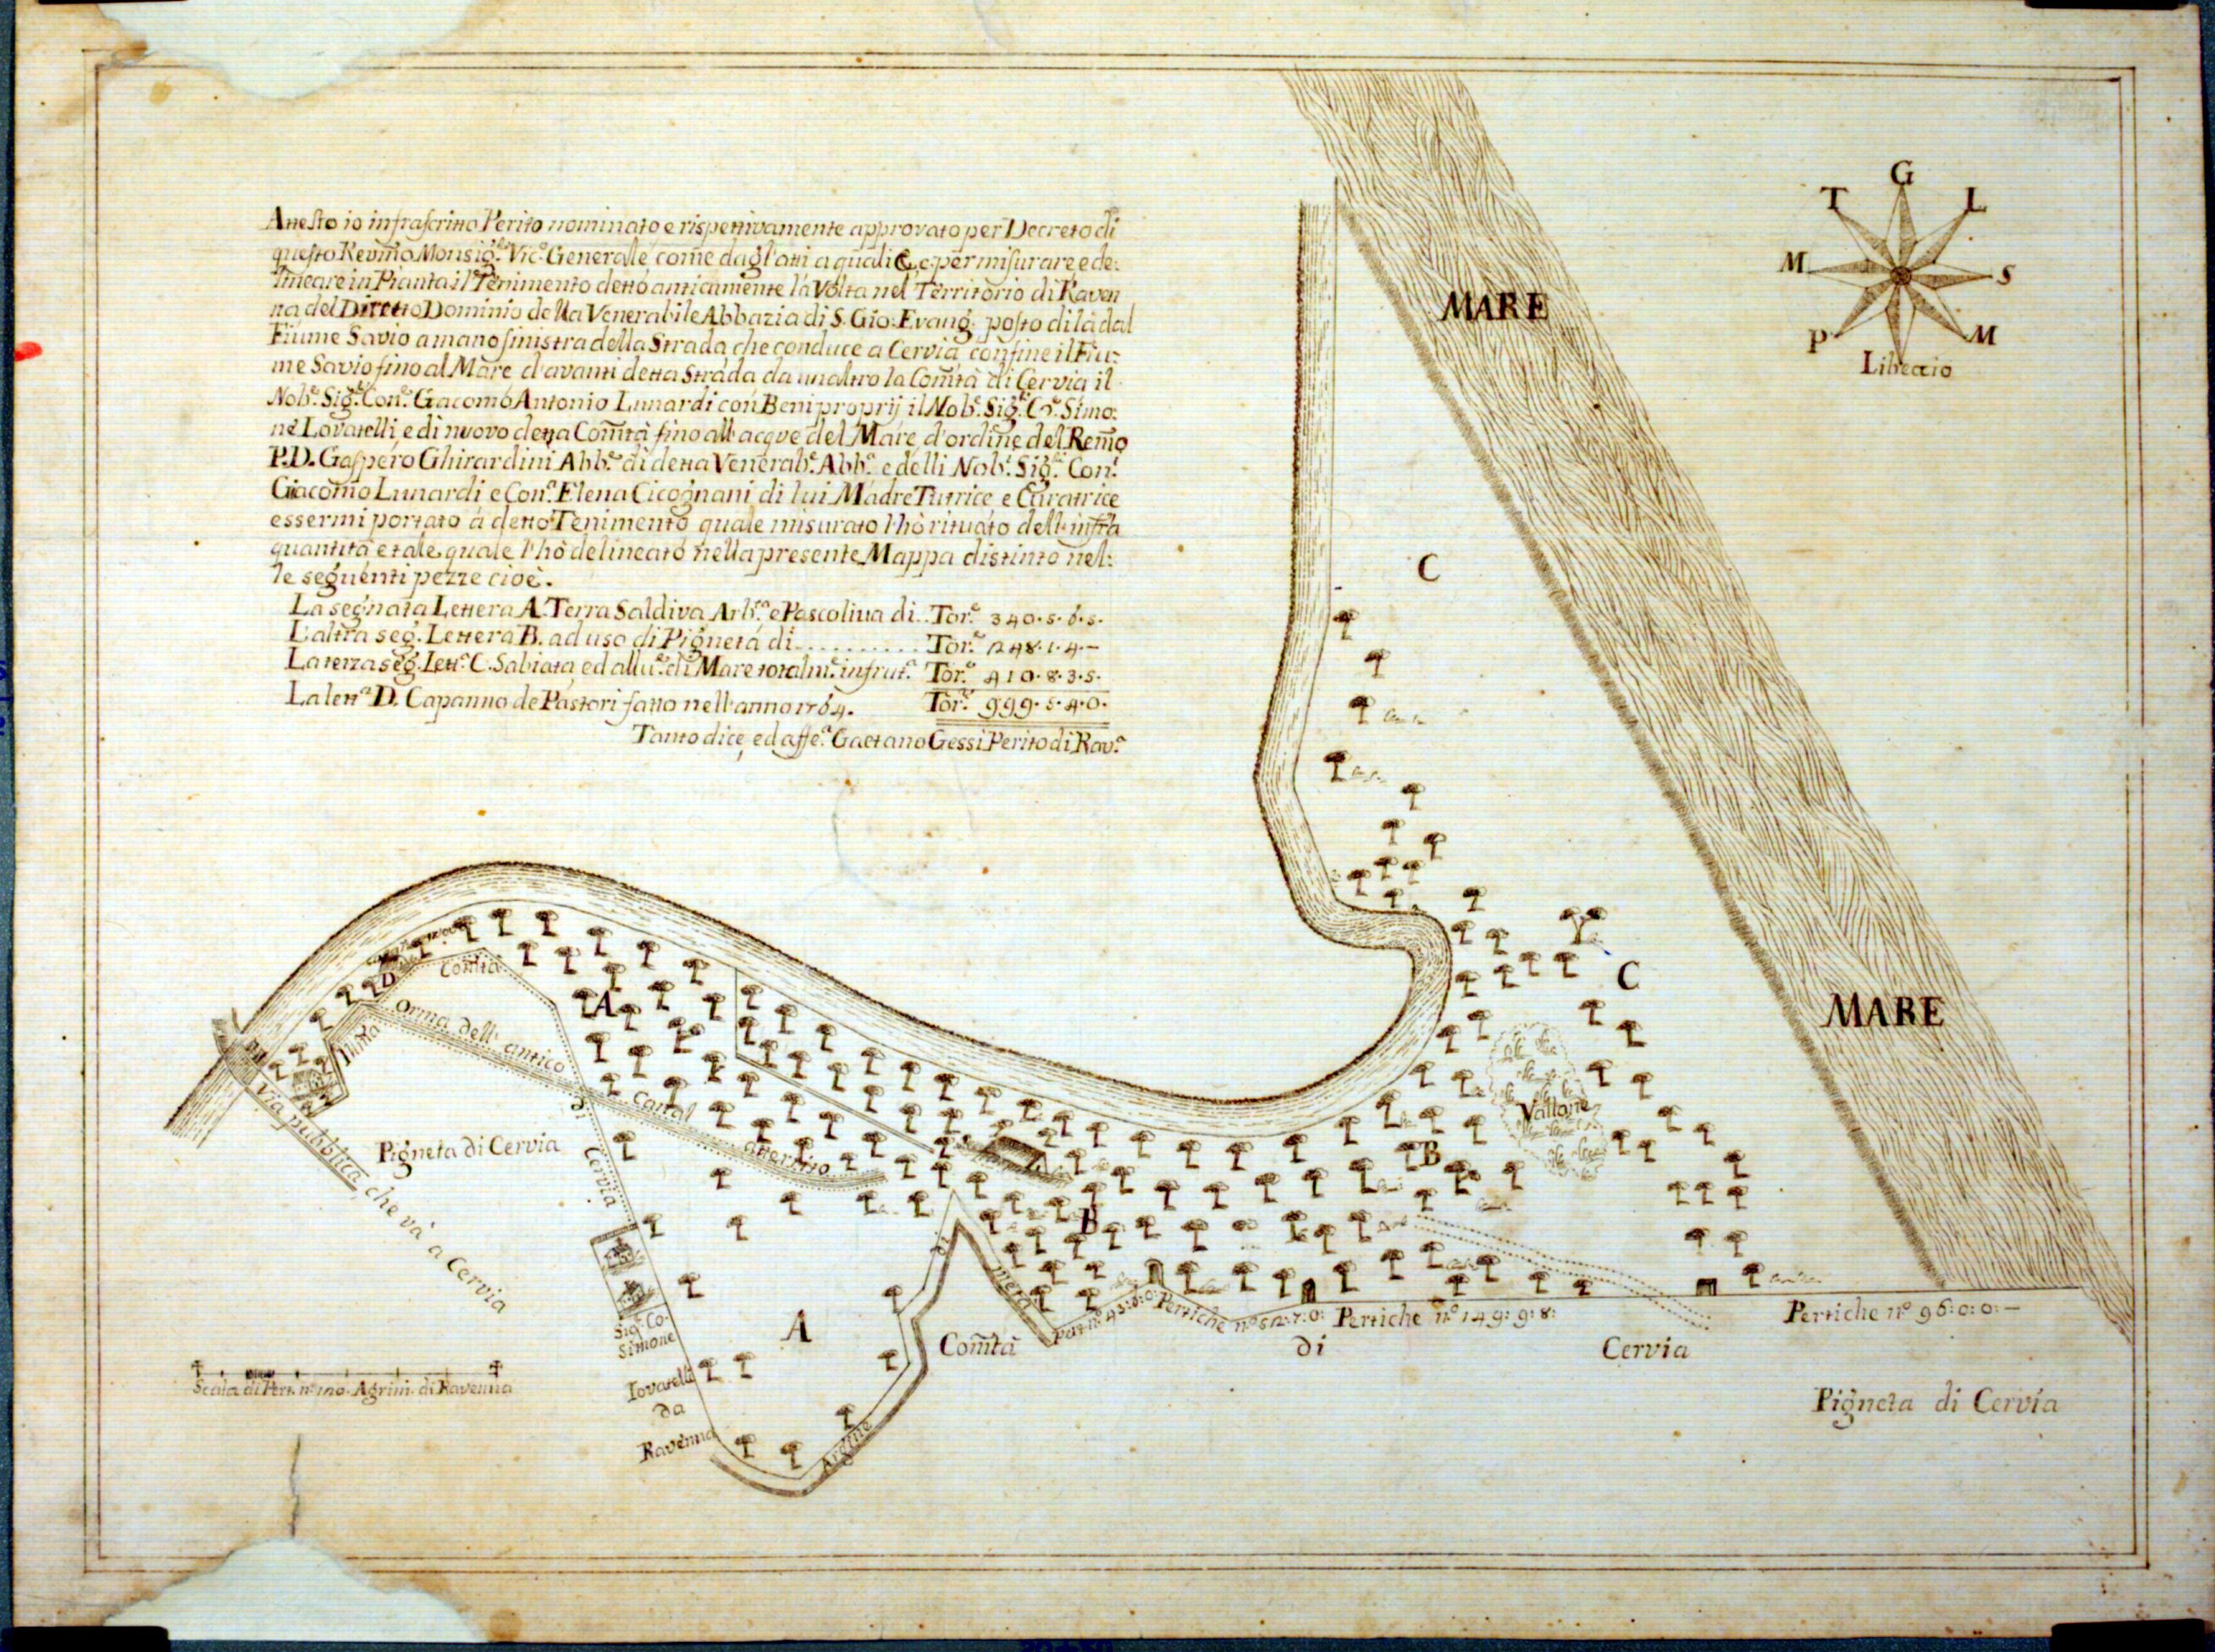 Attesto io infrascritto Perito nominato e rispettivamente approvato per Decreto di
questo Revm̃o Monsig.r Vic.o Generale come dagl'atti a quali &c. e per misurare e de:
lineare in Pianta il Tenimento detto anticamente la Volta nel Territorio di Raven
na del Diretto Dominio della Venerabile Abbazia di S. Gio: Evang. posto di là dal
Fiume Savio a mano sinistra della Strada che conduce a Cervia confine il Fiu:
me Savio fino al Mare d'avanti detta Strada da un altro la Com̃tà di Cervia il
Nob.e Sig.r Con.e Giacomo Antonio Lunardi con Beni proprij il Nob.e Sig.r Co.e Simo:
ne Lovatelli, e di nuovo detta Com̃tà fino all'acque del Mare, d'ordine del Rem̃o
P.D. Gaspero Ghirardini Abb.e di detta Venerab.e Abb.a e delli Nob.i Sig.ri Con.i
Giacomo Lunardi e Con.a Elena Cicognani di lui Madre Tutrice e Curatrice
essermi portato à detto Tenimento quale misurato l'hò rituato dell'infra
quantità e tale quale l'hò delineato nella presente Mappa distinto nel:
le seguenti pezze cioè.
La segnata Lettera A. Terra Saldiva Arb.a e Pascoliva di.. Tor.e 340.5.6.5.
L'altra seg. Lettera B. ad uso di Pigneta di.......... Tor.e 248.1.4.–
La terza seg. Lett.a C. Sabiata, ed alluv.e di Mare totalm.e infrut.a Tor.e 410.8.3.5.
La lett.a D. Capanno de Pastori fatto nell'anno 1764. Tor.e 999.5.4.0.
Tanto dice, ed affe.a Gaetano Gessi Perito di Rav.a
G
T
L
M
S
P
M
Libeccio
MARE
C
C
MARE
D
Com̃tà
A
Orma dell' antico
canal
atterrito
di
Cervia
Via pubblica che và a Cervia
Pigneta di Cervia
Vallone
B
B
Sig.r Co:
Simone
Lovatelli
da
Ravenna
A
Argine
Com̃tà
di
Cervia
Pert. n.o 43:6:0:
Pertiche n.o 52:7:0:
Pertiche n.o 149:9:8:
Pertiche n.o 96:0:0:–
Pigneta di Cervia
Scala di Pert. n.o 120. Agrim. di Ravenna